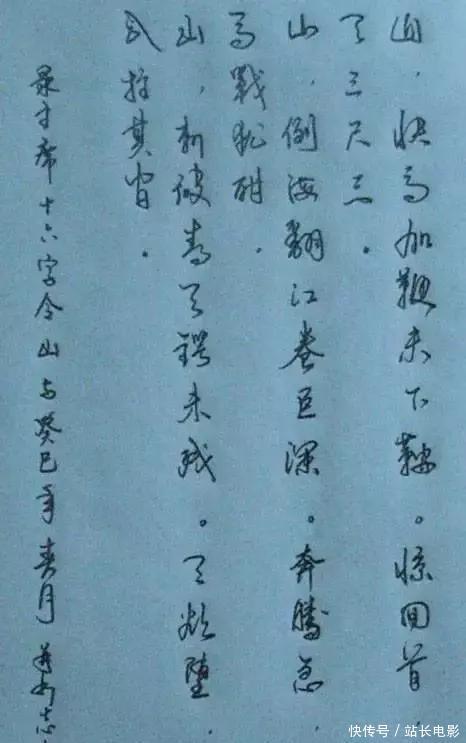 山，快马加鞭未下鞍。惊回首
天三尺三。
山，倒海翻江卷巨澜。奔腾急，
马戰犹酣．
山，刺破青天锷未残。天欲堕，
以拄其间．
录主席十六字令山与癸巳年春月
快传号／站长电影